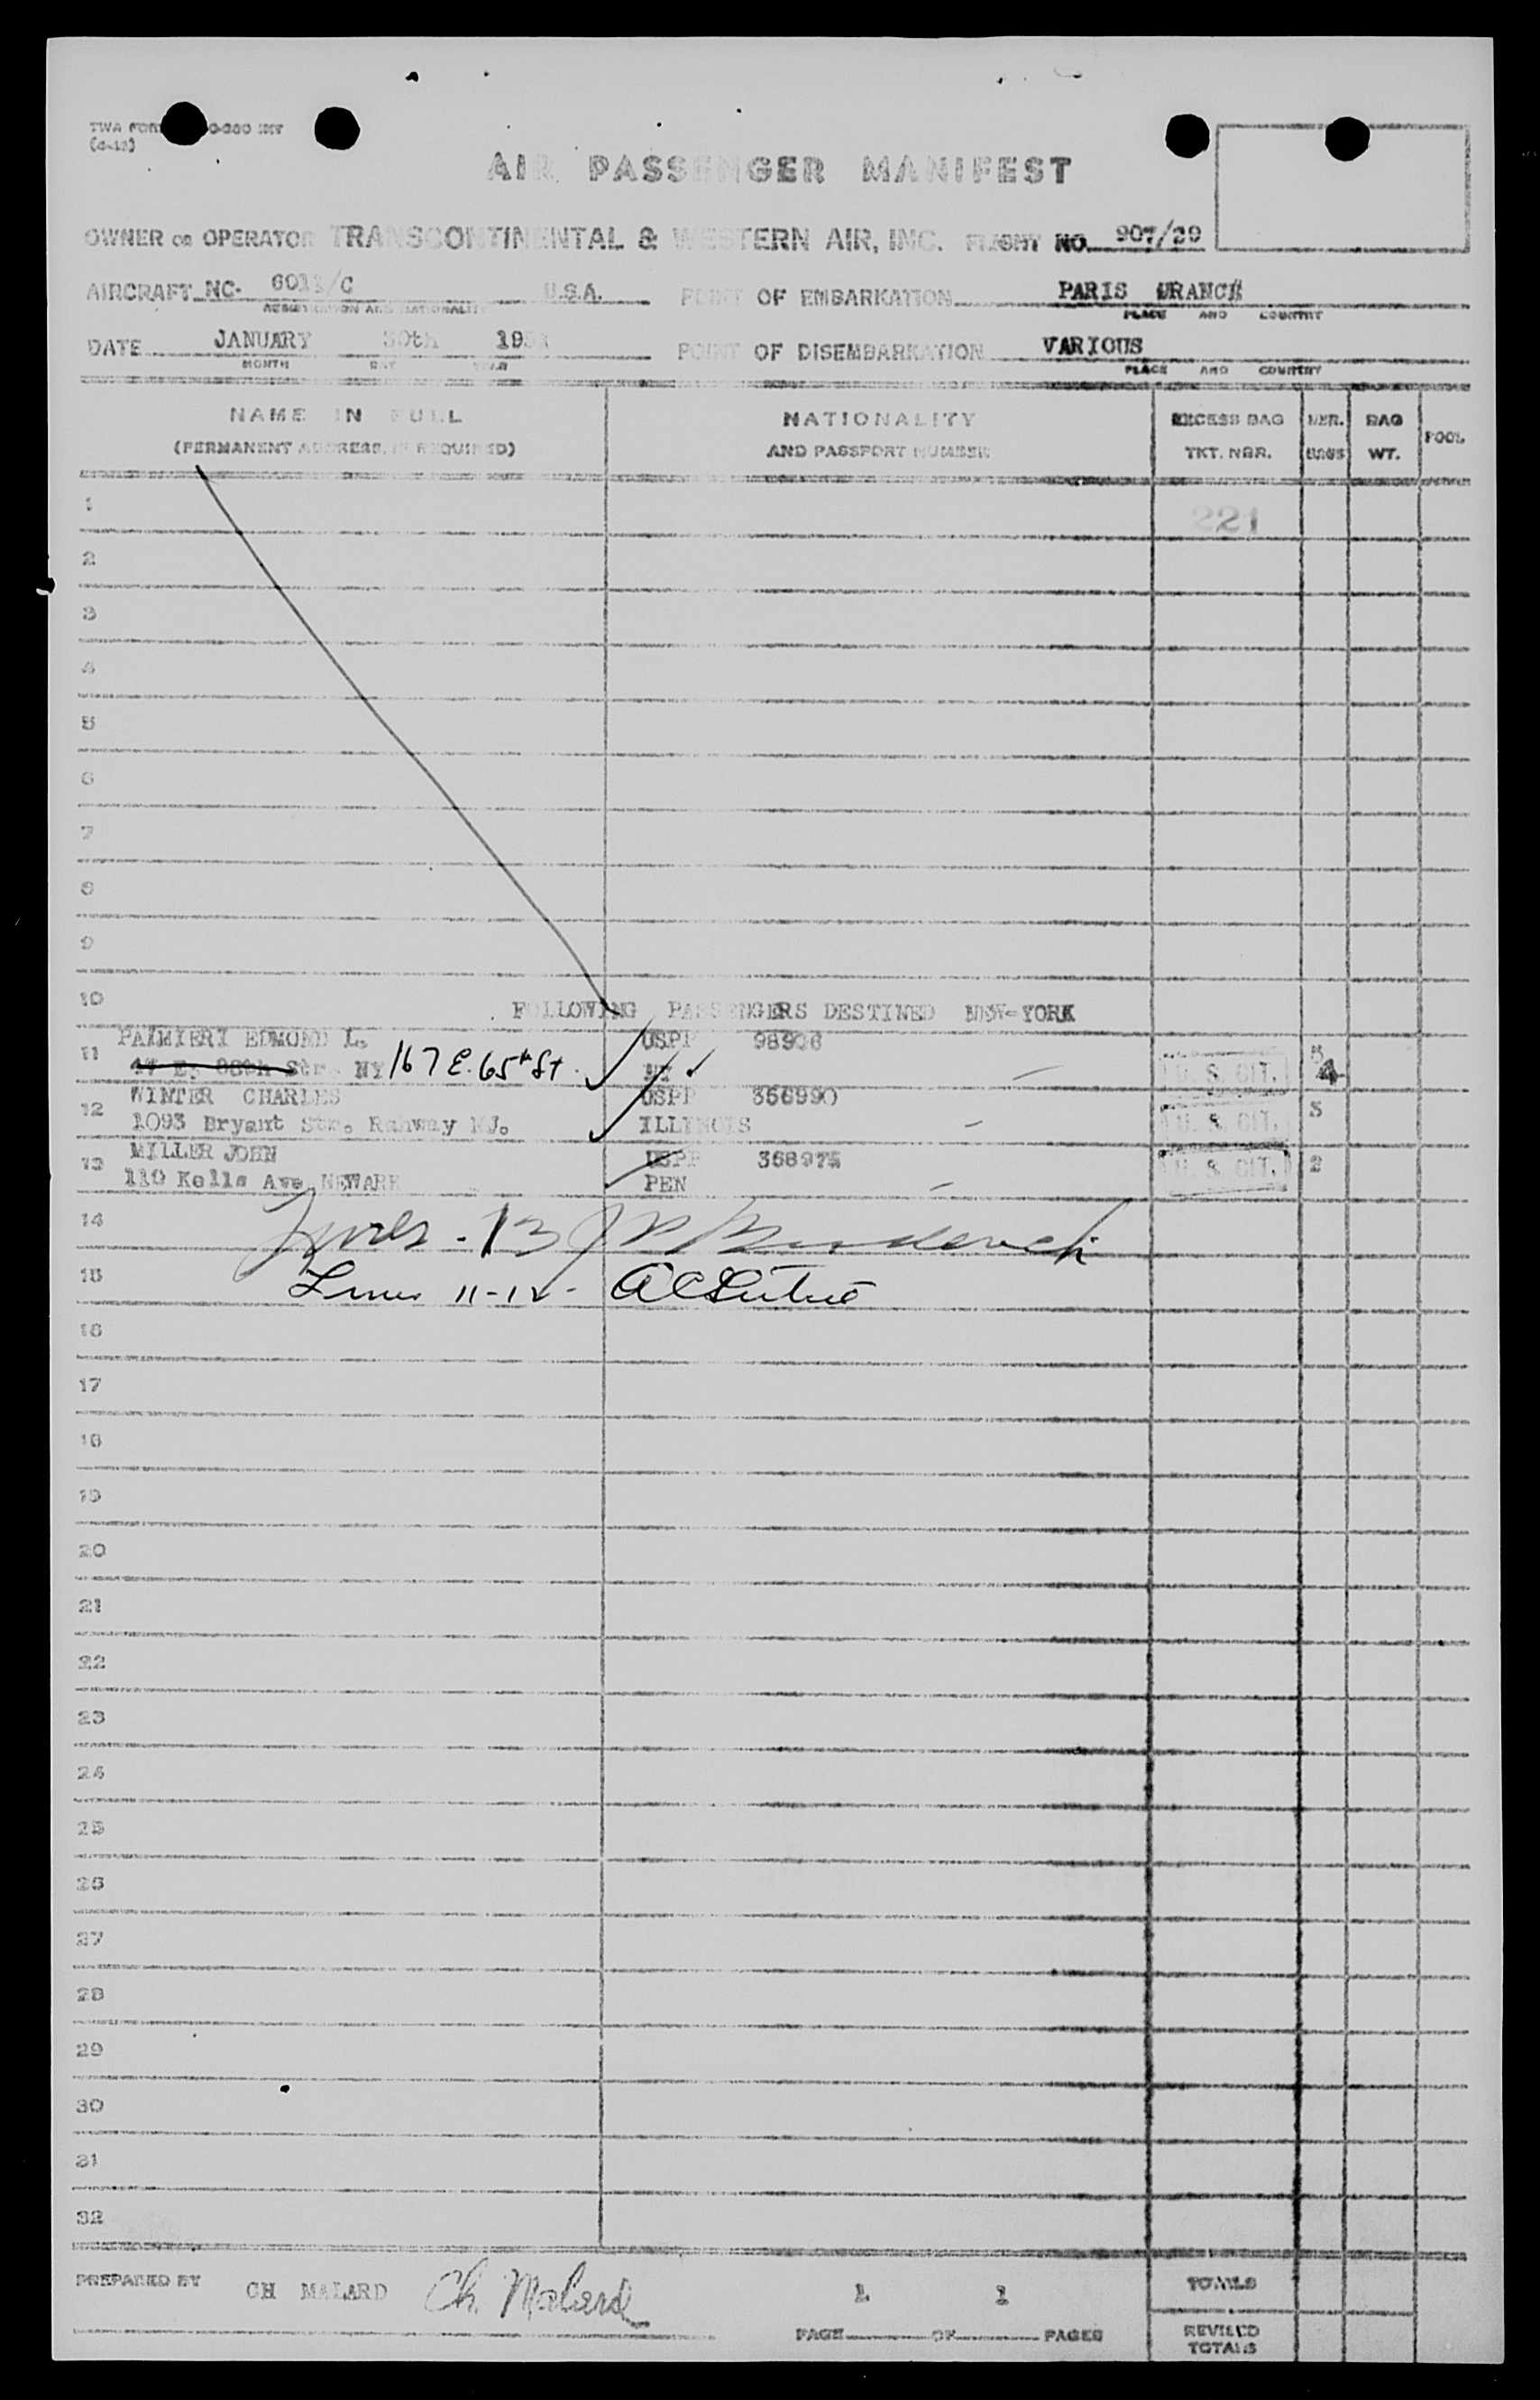 TWA FORM
AIR PASSENGER MANIFEST
OWNER OR OPERATOR TRANSCONTINENTAL & WESTERN AIR, INC. FLIGHT NO. 907/29
AIRCRAFT NC- /C U.S.A. POINT OF EMBARKATION PARIS
REGISTRATION AND NATIONALITY PLACE AND COUNTRY
DATE JANUARY 30th POINT OF DISEMBARKATION VARIOUS
MONTH DAY YEAR PLACE AND COUNTRY
NAME IN FULL NATIONALITY EXCESS BAG NBR. BAG POOL
(PERMANENT ADDRESS, IF REQUIRED) AND PASSPORT NUMBER TKT. NBR. BAGS WT.
1 221
2
3
4
5
6
7
8
9
10 FOLLOWING PASSENGERS DESTINED NEW-YORK
PALMIERI EDMOND L. USPP 98906
11 Str. NY 167 E. 65th St. NY U. S. CIT. 4
12 WINTER CHARLES USPP 366990
1093 Bryant Str. Rahway NJ. ILLINOIS U. S. CIT. 3
13 MILLER JOHN USPP 368975
119 Kells Ave NEWARK PEN U. S. CIT. 2
14
15 Lines 11-12-
16
17
18
19
20
21
22
23
24
25
26
27
28
29
30
31
32
PREPARED BY CH MALARD Ch. Malard 1 1 TOTALS
PAGE OF PAGES REVISED
TOTALS